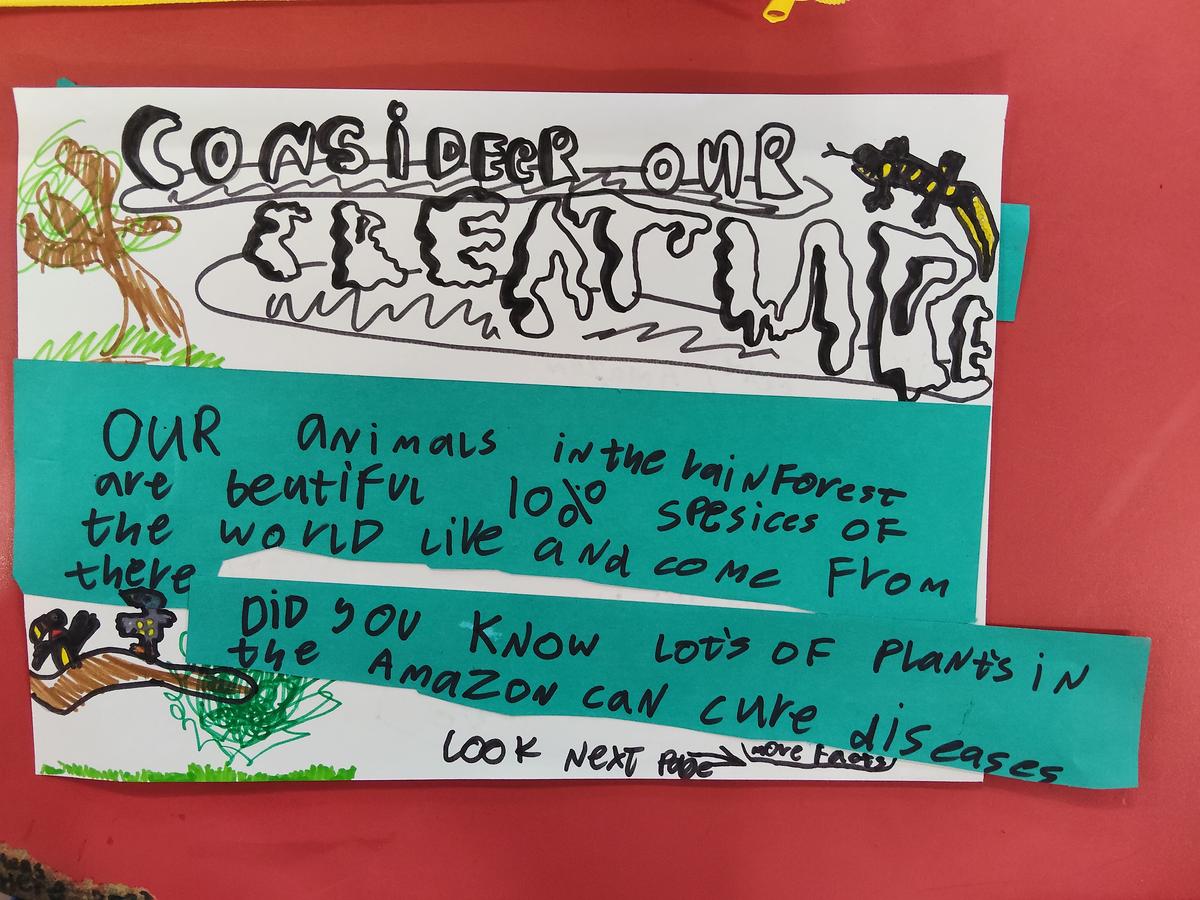 CONSIDEER OUR
CREATURE
OUR animals in the rainforest
are beutiful 10% spesices of
the world like and come from
there
DiD you KNOW Lot's of plant's in
the AmaZon can cure diseases
Look Next page more facts